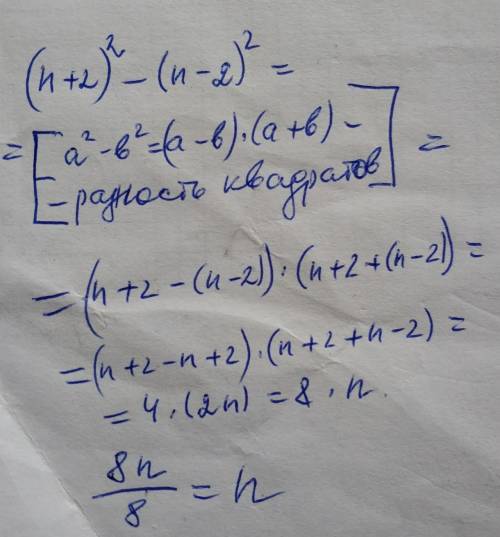 (n+2)² − (n−2)² =
= [a² − в² = (а − в)·(а + в) −
− разность квадратов] =
= (n+2 − (n−2))·(n+2+(n−2)) =
= (n+2−n+2)·(n+2+n−2) =
= 4·(2n) = 8·n.
8n/8 = n